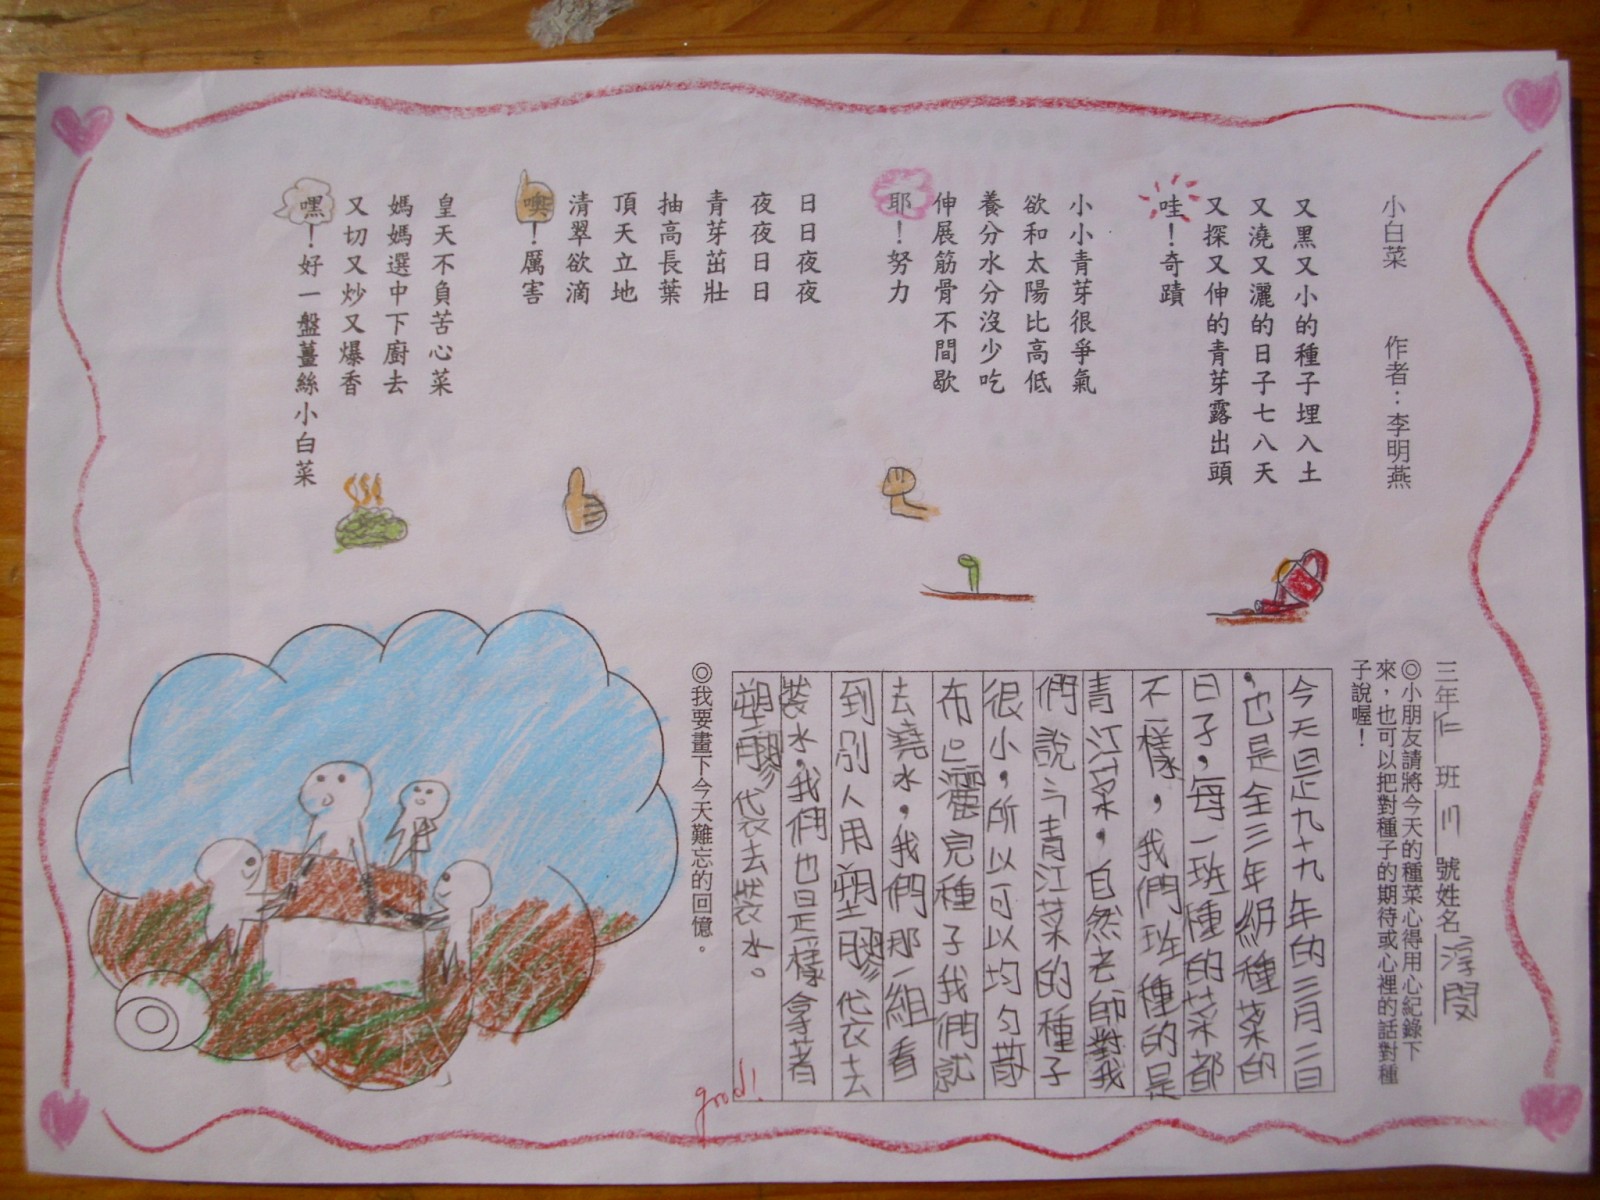 小白菜　作者：李明燕
又黑又小的種子埋入土
又澆又灑的日子七八天
又探又伸的青芽露出頭
哇！奇蹟
小小青芽很爭氣
欲和太陽比高低
養分水分沒少吃
伸展筋骨不間歇
耶！努力
日日夜夜
夜夜日日
青芽茁壯
抽高長葉
頂天立地
清翠欲滴
噢！厲害
皇天不負苦心菜
媽媽選中下廚去
又切又炒又爆香
嘿！好一盤薑絲小白菜
三年仁班 號姓名淳閔
◎小朋友請將今天的種菜心得用心紀錄下
來，也可以把對種子的期待或心裡的話對種
子說喔！
今天是九十九年的三月二日
，也是全三年級種菜的
日子，每一班種的菜都
不一樣，我們班種的是
青江菜，自然老師對我
們說 青江菜的種子
很小，所以可以均勻散
布 灑完種子我們就
去澆水，我們那一組看
到別人用塑膠袋去
裝水，我們也是一樣拿著
塑膠袋去裝水。
good!
◎我要畫下今天難忘的回憶。